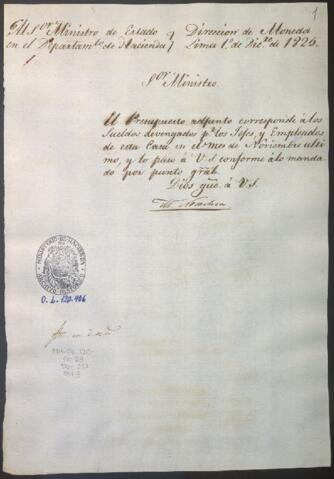 1
Al S.or Ministro de Estado
en el Departam.to de Hacienda
Direccion de Moneda
Lima 1.º de Dic.re de 1826.
S.or Ministro
El Presupuesto adjunto corresponde á los
Sueldos devengados p.r los Jefes, y Empleados
de esta Casa en el mes de Noviembre ulti-
mo, y lo paso á V.S. conforme á lo manda-
do por punto gral.
Dios gue. á V.S.
O.L. 150-406